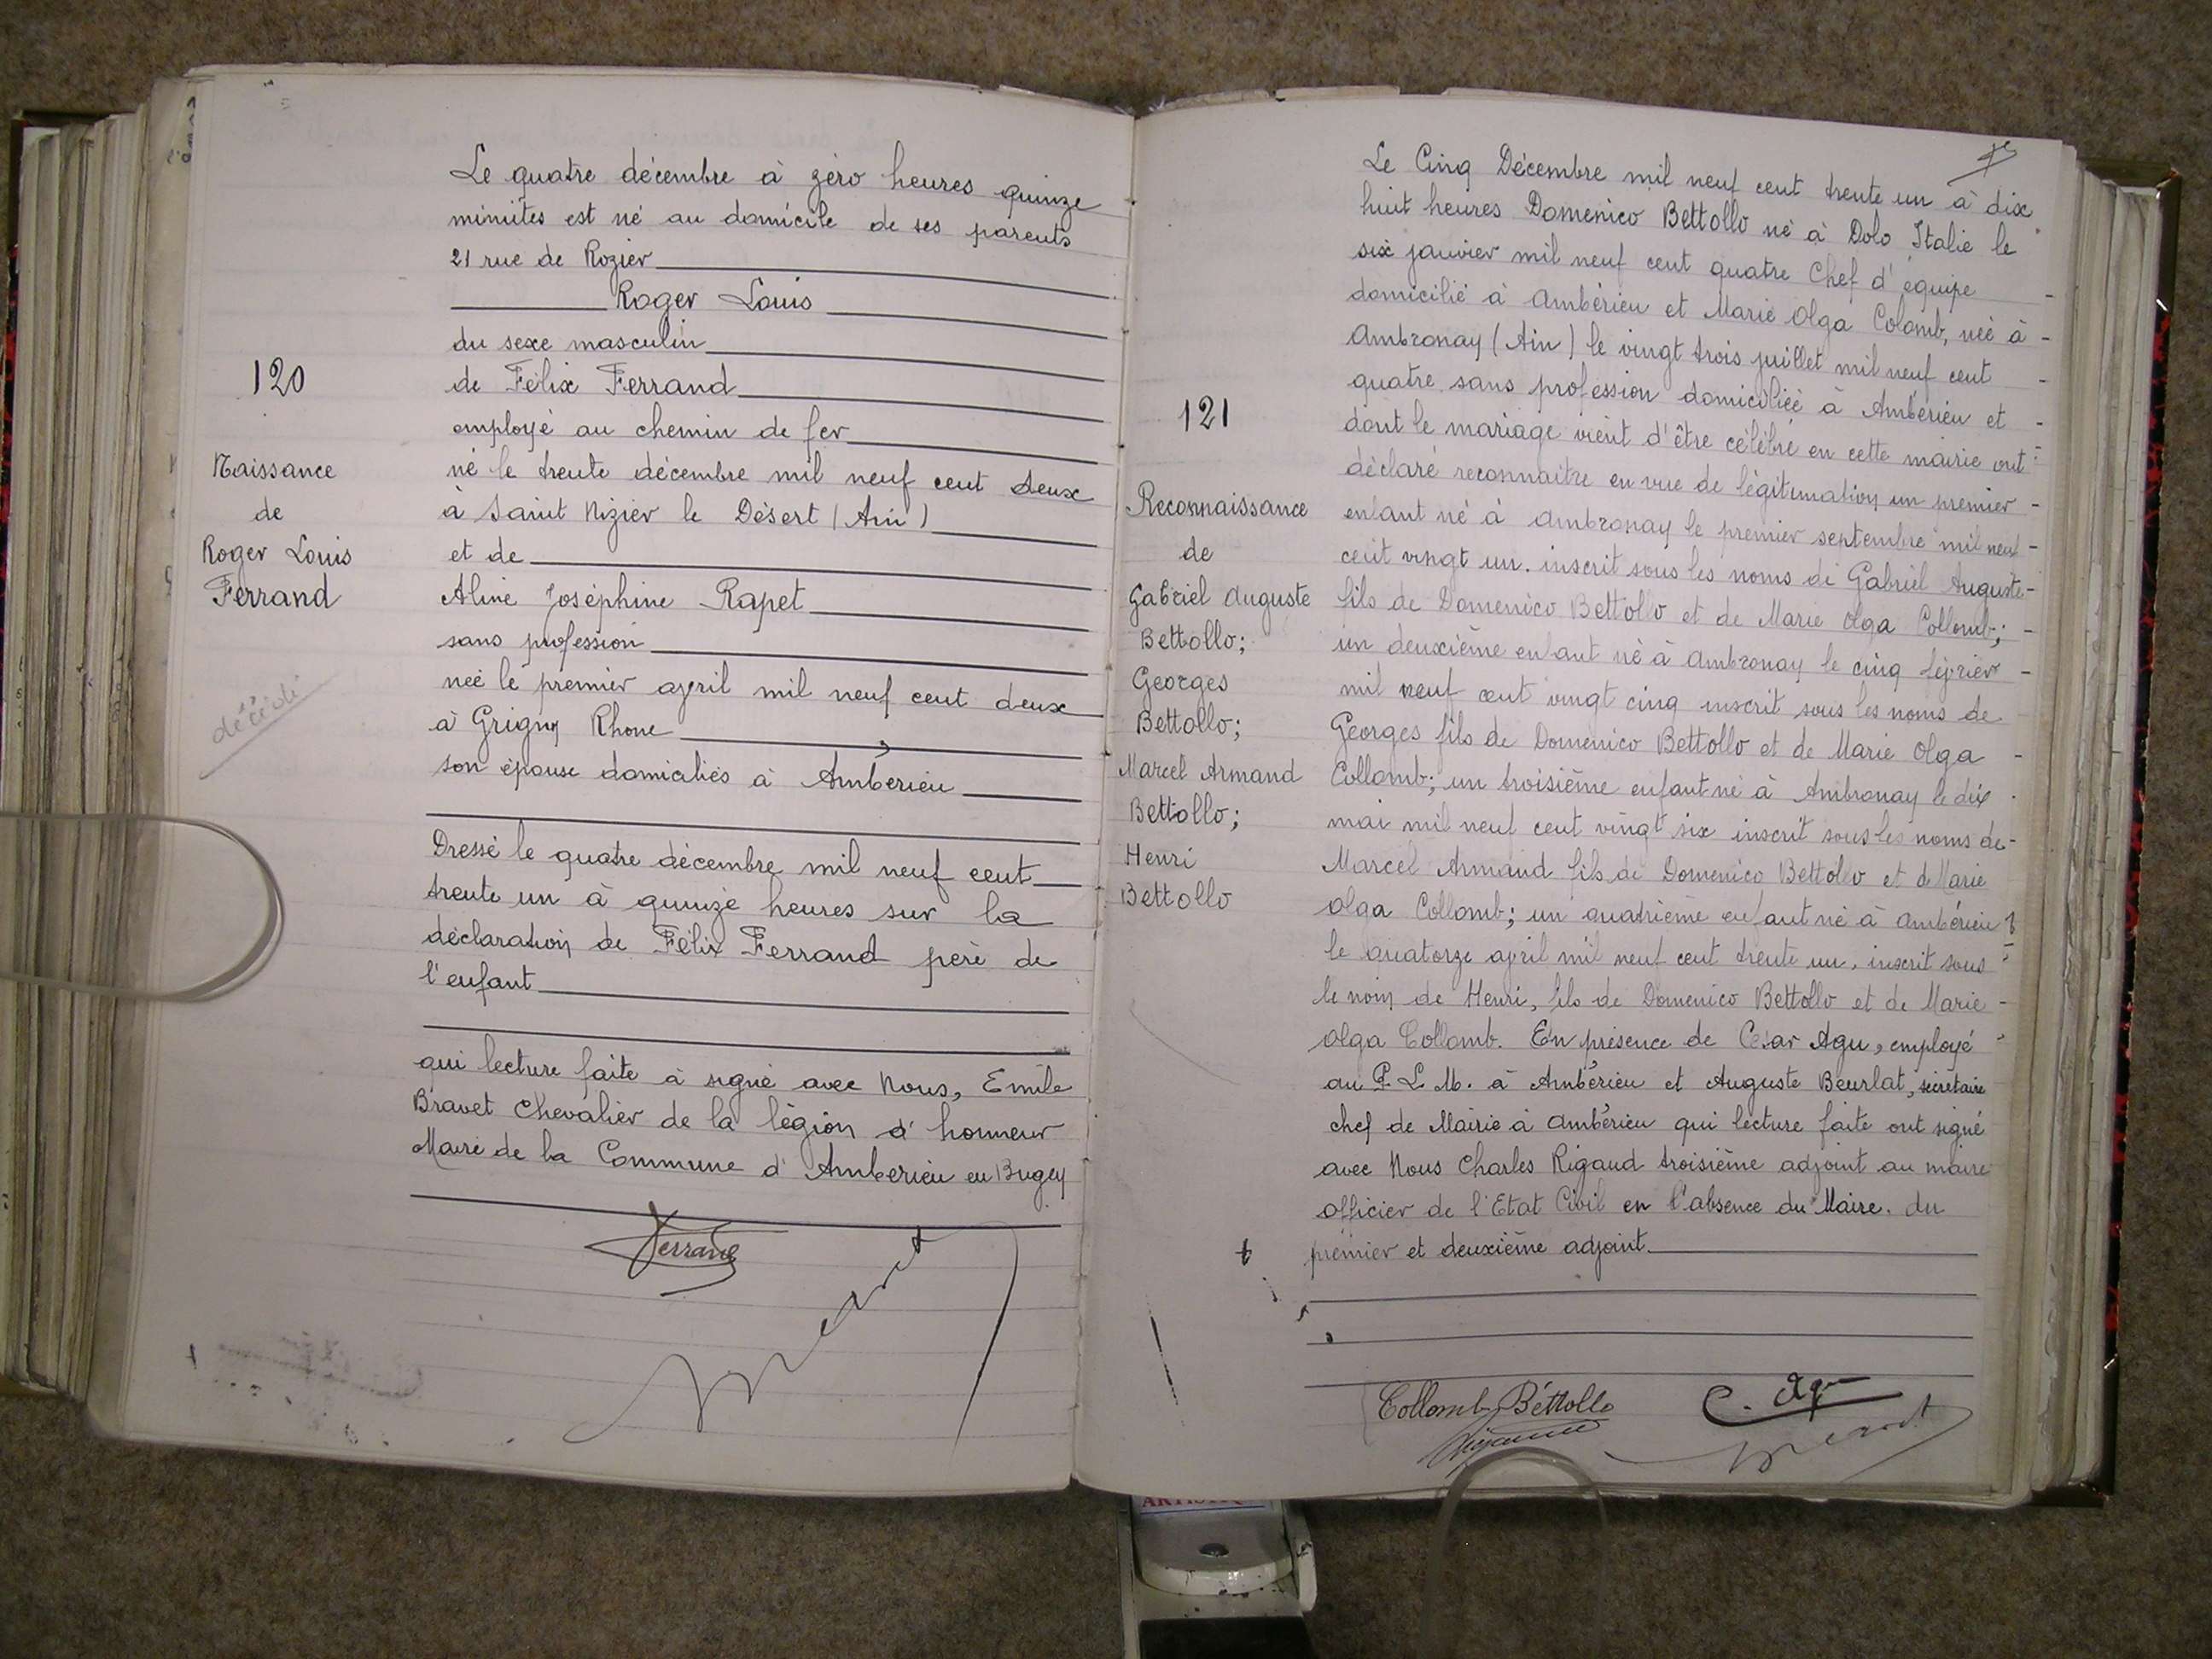 Le quatre décembre à zéro heures quinze
minutes est né au domicile de ses parents
21 rue de Rozier
Roger Louis
du sexe masculin
120
de Félix Ferrand
employé au chemin de fer
Naissance
de
Roger Louis
Ferrand
né le trente décembre mil neuf cent deux
à Saint Nizier le Désert (Ain)
et de
Aline Joséphine Rapet
sans profession
décédé
née le premier april mil neuf cent deux
à Grigny Rhone
son épouse domiciliés à Amberieu
Dressé le quatre décembre mil neuf cent
trente un à quinze heures sur la
déclaration de Félix Ferrand père de
l'enfant
qui lecture faite à signé avec Nous, Emile
Bravet Chevalier de la légion d'honneur
Maire de la Commune d'Amberieu en Bugey
Ferrand
Le Cinq Décembre mil neuf cent trente un à dix
huit heures Domenico Bettollo né à Dolo Italie le
six janvier mil neuf cent quatre Chef d'équipe
domicilié à Ambérieu et Marie Olga Colomb, née à
Ambronay (Ain) le vingt trois juillet mil neuf cent
quatre sans profession domiciliée à Ambérieu et
dont le mariage vient d'être célébré en cette mairie ont
déclaré reconnaitre en vue de légitimation un premier
enfant né à Ambronay le premier septembre mil neuf
cent vingt un. inscrit sous les noms de Gabriel Auguste
fils de Domenico Bettollo et de Marie Olga Collomb;
un deuxième enfant né à Ambronay le cinq février
mil neuf cent vingt cinq inscrit sous les noms de
Georges fils de Domenico Bettollo et de Marie Olga
Collomb; un troisième enfant né à Ambronay le dix
mai mil neuf cent vingt six inscrit sous les noms de
Marcel Armand fils de Domenico Bettollo et de Marie
Olga Collomb; un quatrième enfant né à Ambérieu
le quatorze april mil neuf cent trente un, inscrit sous
le nom de Henri, fils de Domenico Bettollo et de Marie
Olga Collomb. En présence de César Agu, employé
au P. L. M. à Ambérieu et Auguste Beurlat, secrétaire
chef de Mairie à Ambérieu qui lecture faite ont signé
avec Nous Charles Rigaud troisième adjoint au maire
officier de l'Etat Civil en l'absence du Maire. du
premier et deuxième adjoint
121
Reconnaissance
de
Gabriel Auguste
Bettollo;
Georges
Bettollo;
Marcel Armand
Bettollo;
Henri
Bettollo
Collomb Béttollo
C. Agu